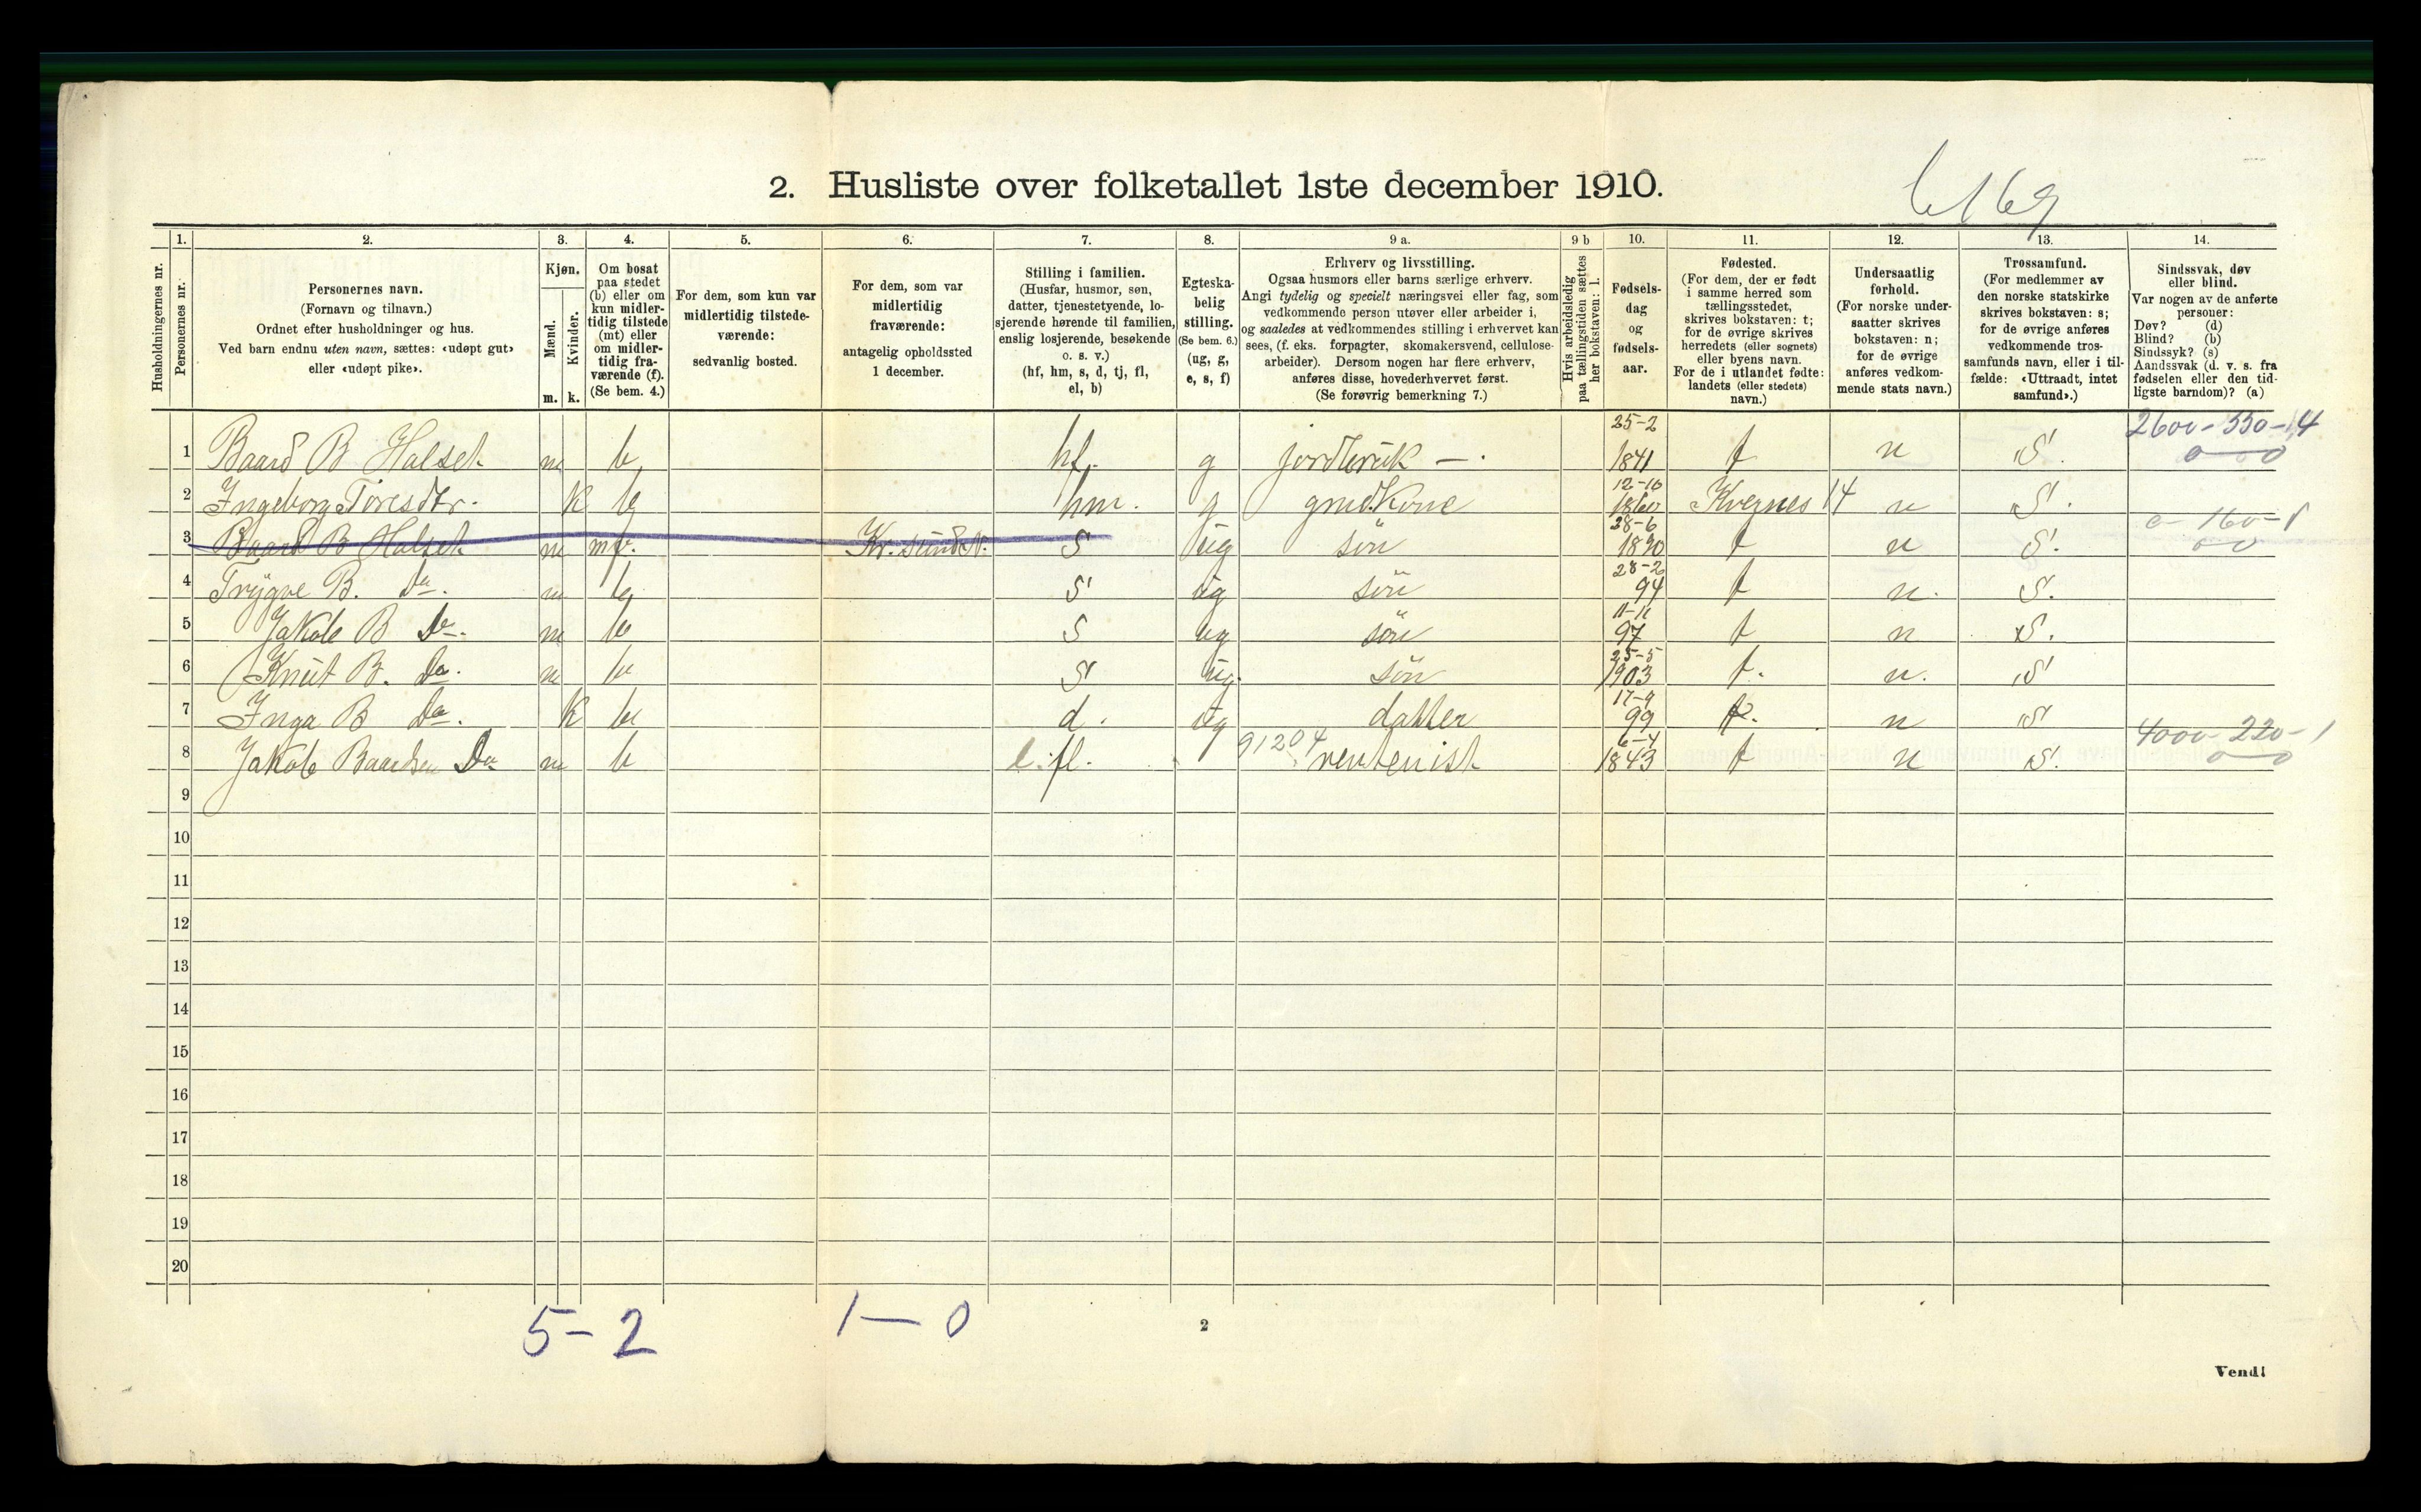 2. Husliste over folketallet 1ste december 1910.
1. 2. 3. 4. 5. 6. 7. 8. 9 a. 9 b 10. 11. 12. 13. 14.
Husholdningernes nr.
Personernes nr.
Personernes navn.
(Fornavn og tilnavn.)
Ordnet efter husholdninger og hus.
Ved barn endnu uten navn, sættes: «udøpt gut»
eller «udøpt pike».
Kjøn.
Mænd.
Kvinder.
m. k.
Om bosat
paa stedet
(b) eller om
kun midler-
tidig tilstede
(mt) eller
om midler-
tidig fra-
værende (f).
(Se bem. 4.)
For dem, som kun var
midlertidig tilstede-
værende:
sedvanlig bosted.
For dem, som var
midlertidig
fraværende:
antagelig opholdssted
1 december.
Stilling i familien.
(Husfar, husmor, søn,
datter, tjenestetyende, lo-
sjerende hørende til familien,
enslig losjerende, besøkende
o. s. v.)
(hf, hm, s, d, tj, fl,
el, b)
Egteska-
belig
stilling.
(Se bem. 6.)
(ug, g,
e, s, f)
Erhverv og livsstilling.
Ogsaa husmors eller barns særlige erhverv.
Angi tydelig og specielt næringsvei eller fag, som
vedkommende person utøver eller arbeider i,
og saaledes at vedkommendes stilling i erhvervet kan
sees, (f. eks. forpagter, skomakersvend, cellulose-
arbeider). Dersom nogen har flere erhverv,
anføres disse, hovederhvervet først.
(Se forøvrig bemerkning 7.)
Hvis arbeidsledig
paa tællingstiden sættes
her bokstaven: l.
Fødsels-
dag
og
fødsels-
aar.
Fødested.
(For dem, der er født
i samme herred som
tællingsstedet,
skrives bokstaven: t;
for de øvrige skrives
herredets (eller sognets)
eller byens navn.
For de i utlandet fødte:
landets (eller stedets)
navn.)
Undersaatlig
forhold.
(For norske under-
saatter skrives
bokstaven: n;
for de øvrige
anføres vedkom-
mende stats navn.)
Trossamfund.
(For medlemmer av
den norske statskirke
skrives bokstaven: s;
for de øvrige anføres
vedkommende tros-
samfunds navn, eller i til-
fælde: «Uttraadt, intet
samfund».)
Sindssvak, døv
eller blind.
Var nogen av de anførte
personer:
Døv? (d)
Blind? (b)
Sindssyk? (s)
Aandssvak (d. v. s. fra
fødselen eller den tid-
ligste barndom)? (a)
1 Baard B Halset m b hf. g jordbruk —. 25-2 1841 t n S. 2600-550-4
2 Ingeborg Toresdtr. k b hm. g gmd.kone 12-10 1860 Kvernes 14 n S.
3 Baard B Halset m mf. Kr.sund N. S ug søn 28-6 1890 t n S. 0-160-1
4 Trygve B. Do. m b S ug søn 28-2 94 t n. S.
5 Jakob B Do. m b S ug søn 11-11 97 t n S.
6 Knut B. Do. m b S ug. søn 25-5 1903 t. n. S
7 Inga B Do. k b d. ug datter 17-9 99 t. n S
8 Jakob Baardsen Do m b e.fl. 91204 rentenist 6-4 1843 t n S. 4000-220-1
9
10
11
12
13
14
15
16
17
18
19
20
5-2 1-0
2
Vend!